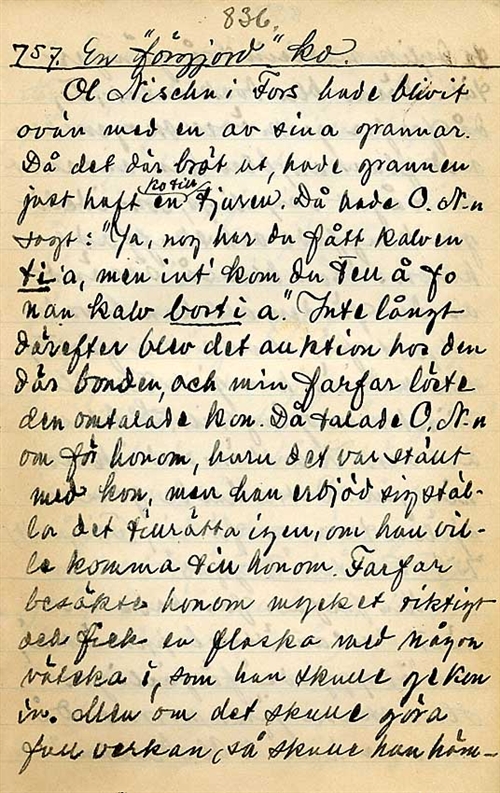 836.
757. En "förgjord" ko.
Ol Nischu i Fors hade blivit
ovän med en av sina grannar.
Då det där bröt ut, hade grannen
just haft en ko till tjuren. Då hade O. N-n
sagt: "Ja, nog har du fått kalven
ti 'a, men int' kom du tell å fo
nan kalv bort i a". Inte långt
därefter blev det auktion hos den
där bonden, och min farfar löste
den omtalade kon. Då talade O. N-n
om för honom, huru det var ställt
med kon, men han erbjöd sig stäl-
la det tillrätta igen, om han vil-
le komma till honom. Farfar
besökte honom mycket riktigt
och fick en flaska med någon
vätska i, som han skulle ge kon
in. Men om det skulle göra
full verkan, så skulle han häm-